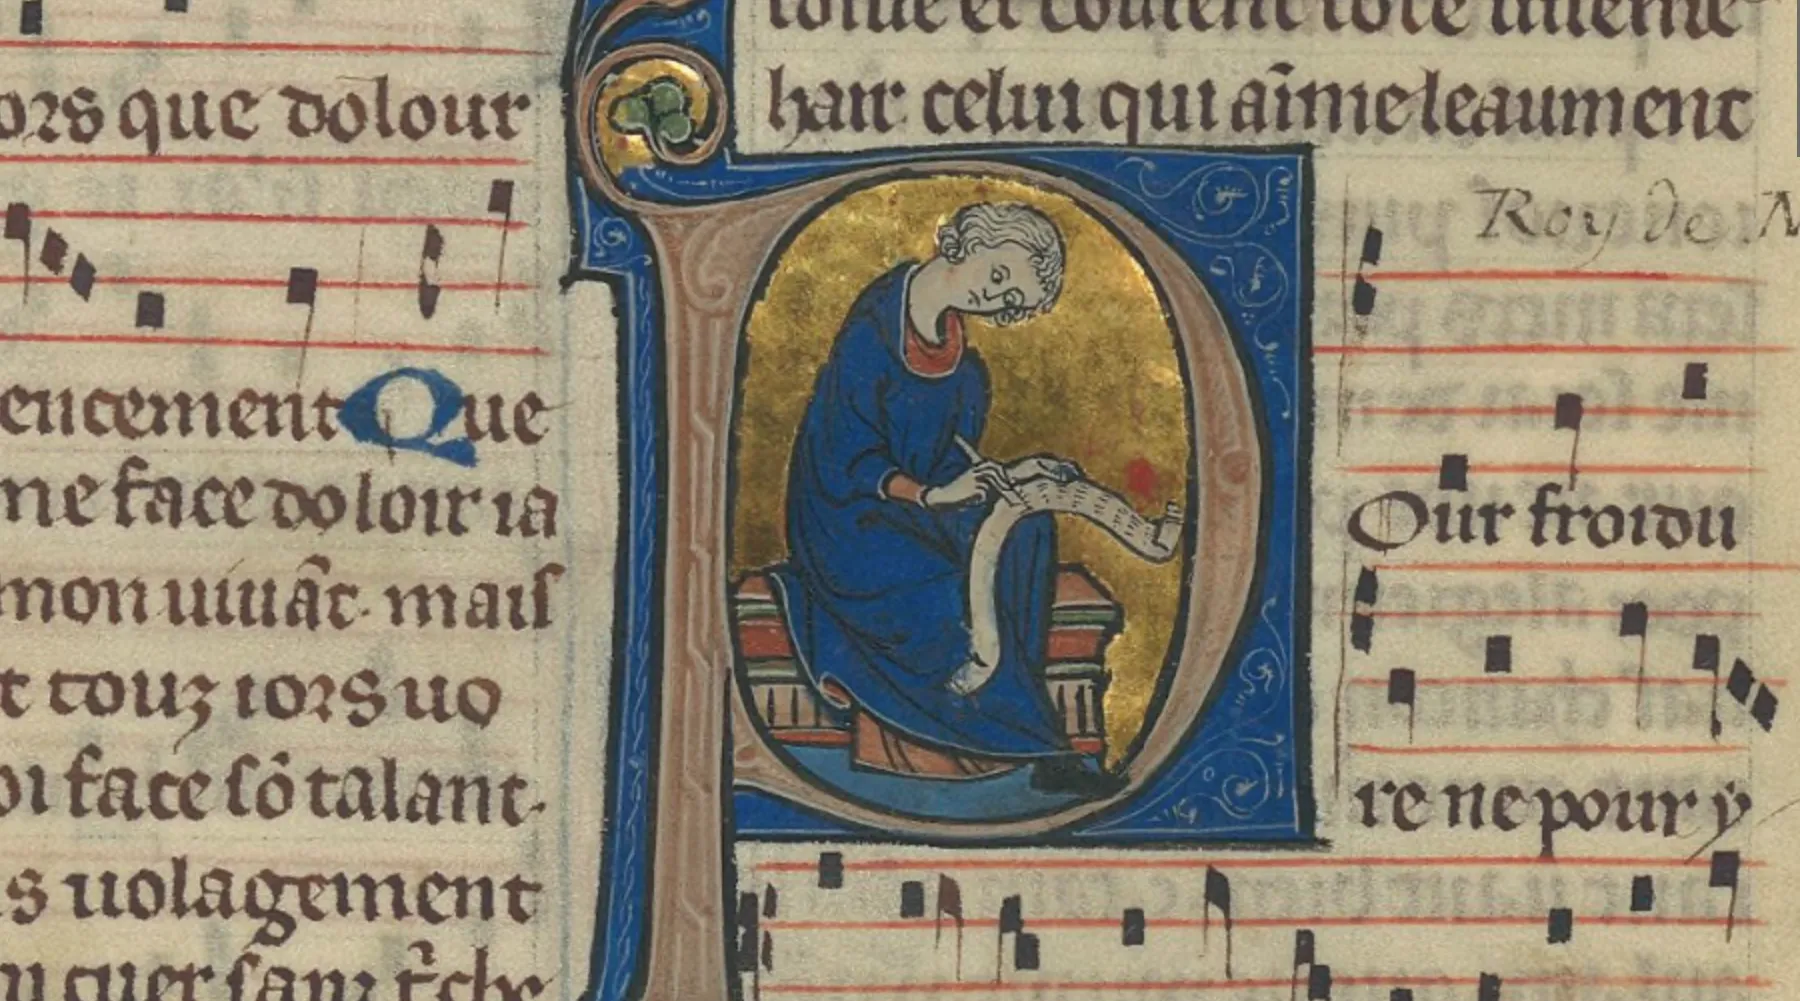 ors que dolour
encement Que
me face doloir ia
mon uiuãt. mais
t touz iors uo
oi face sõ talant.
s uolagement
u cuer sanz t̃che
toute et
hair celui qui aĩme leaument
Roy de N
Our froidu
re ne pour y